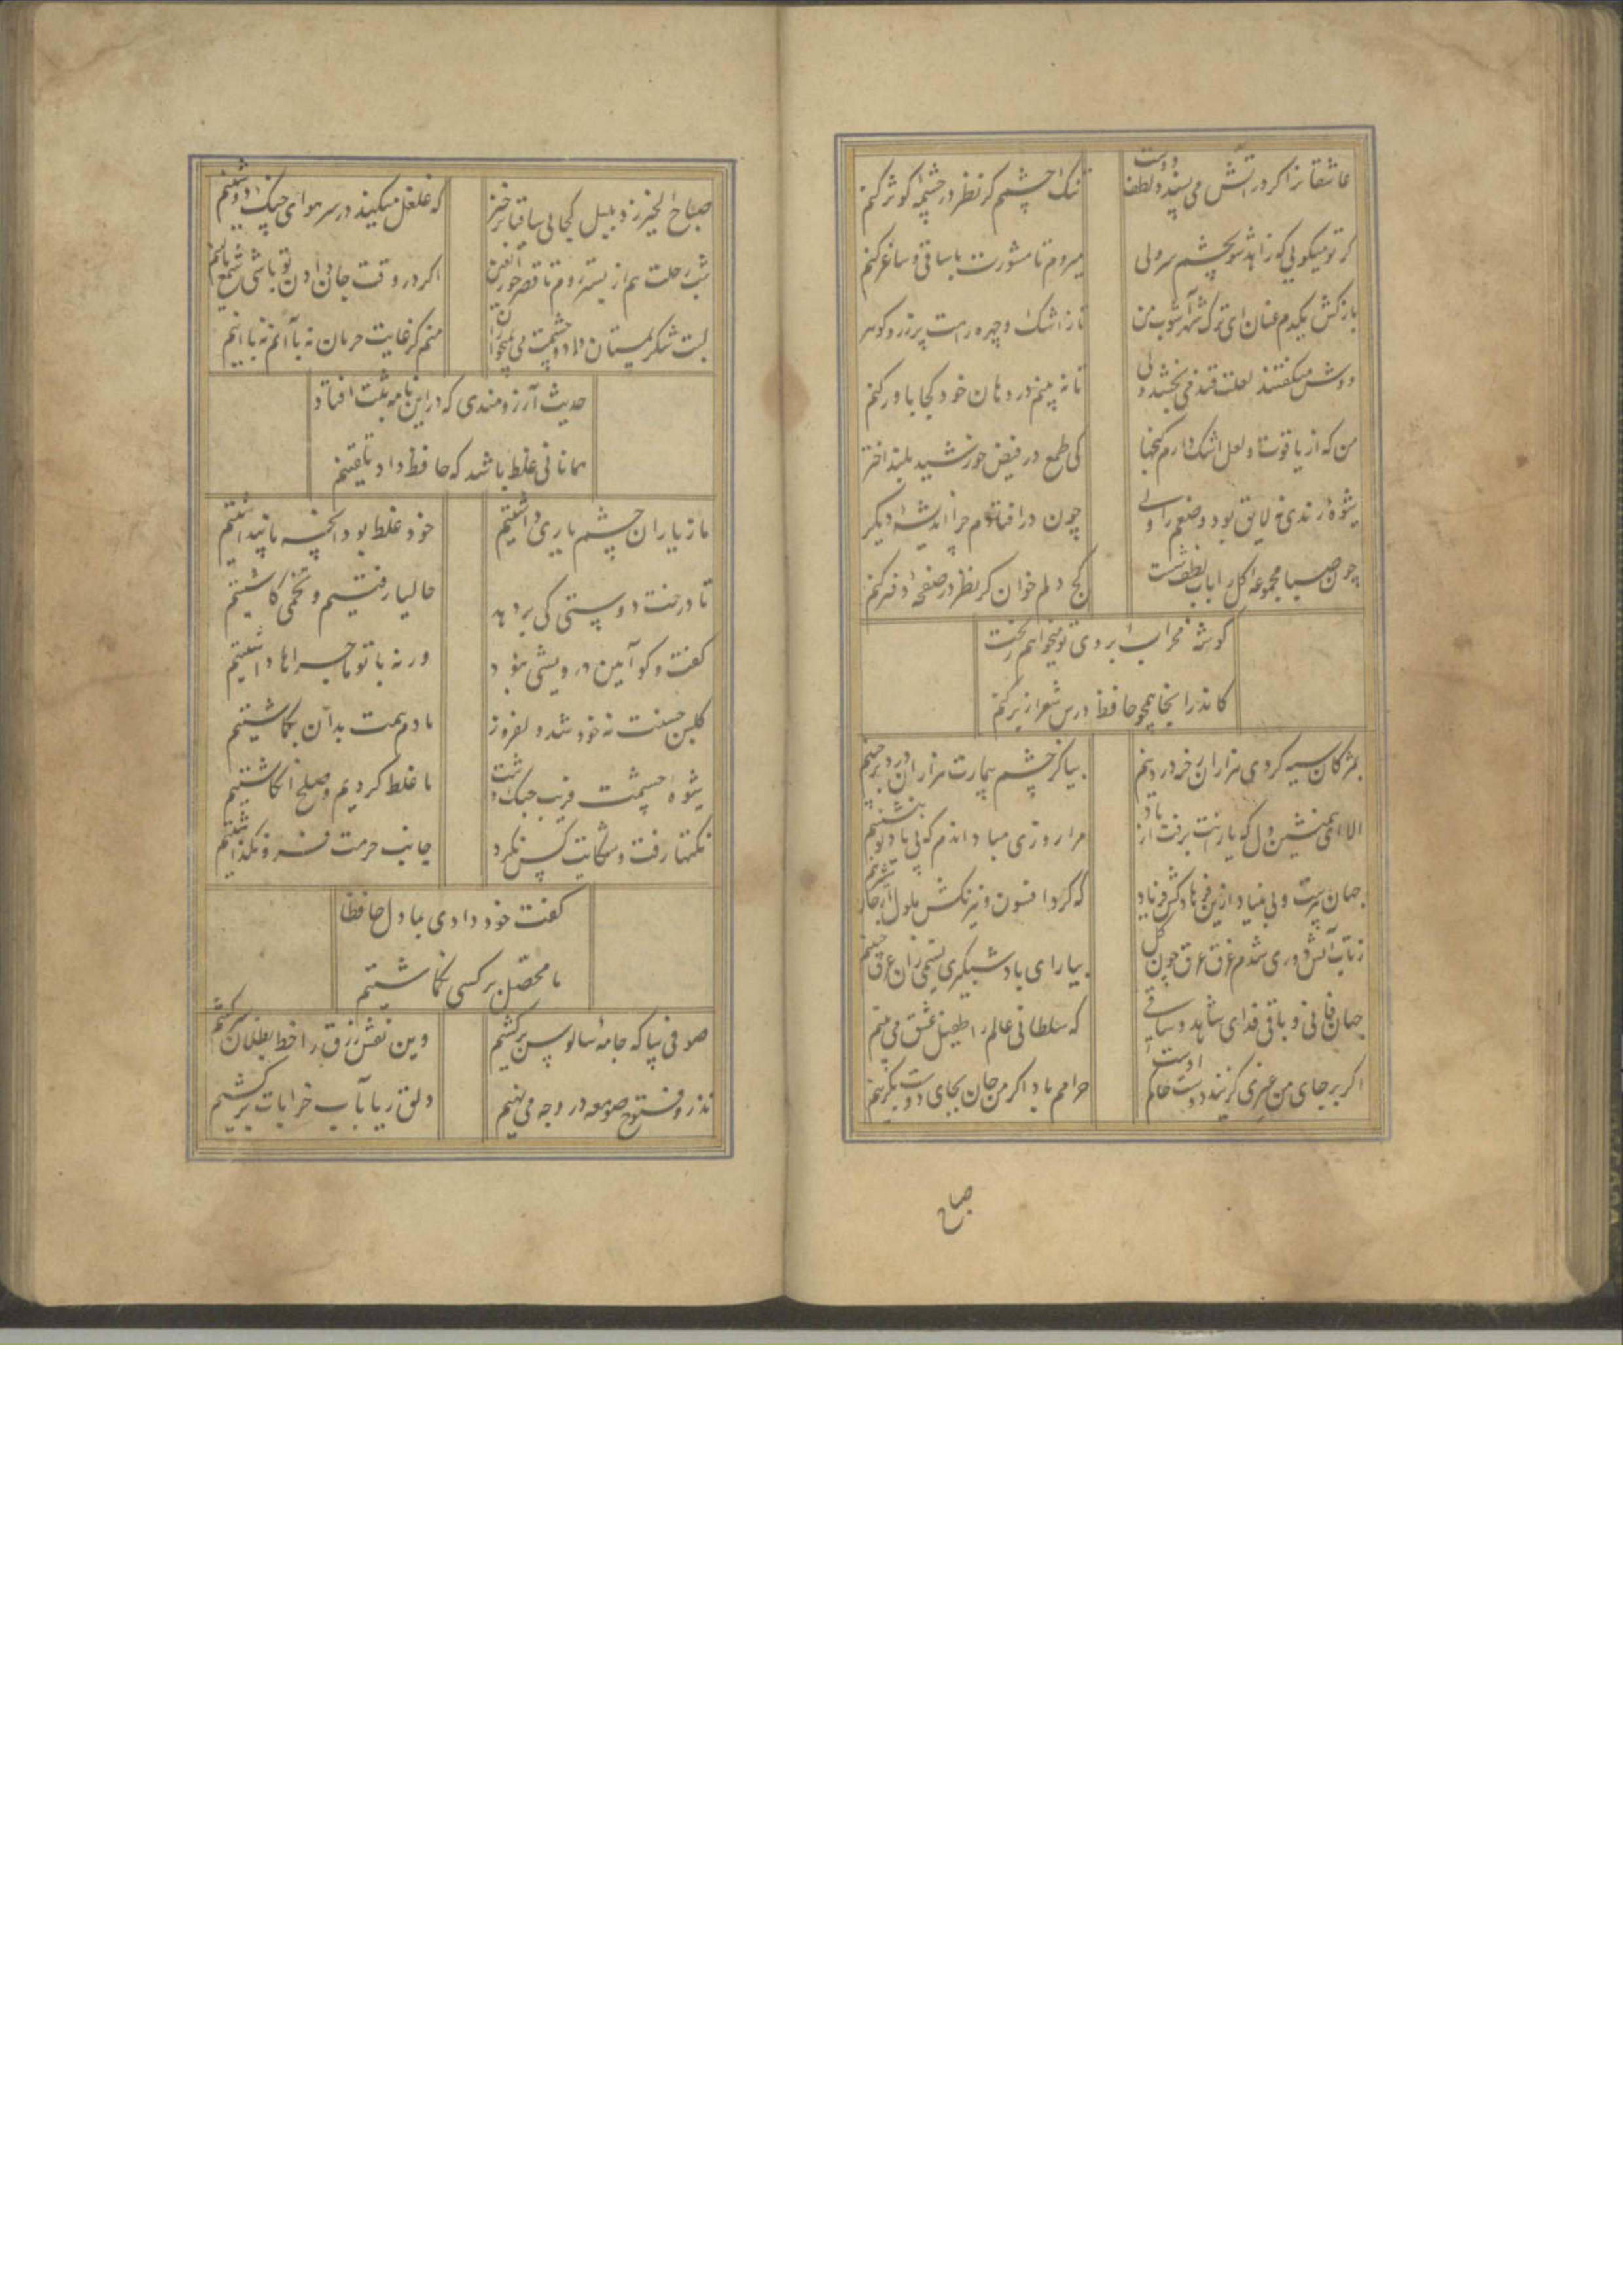 عاشقانرا کر در آتش می پسندد لطف دوست
تنک چشمم کر نظر در چشمه کوثر کنم
کر تو میکویی که زاهد شو بچشم سر ولی
میروم تا مشورت با ساقی و ساغر کنم
بازکش یکدم عنان ای ترک شهر آشوب من
تا ز اشک و چهره راهت پر زر و کوهر
دوش میکفتند لعلت قند می بخشد ولی
تا نه بینم در دهان خود کجا باور کنم
من که از یاقوت و لعل اشک دارم کنجها
کی طمع در فیض خورشید بلند اختر
شیوهٔ رندی نه لایق بود وضعم را ولی
چون در افتادم چرا اندیشهٔ دیکر
چون صبا مجموعهٔ کل را بآب لطف شست
کج دلم خوان کر نظر در صفحهٔ دفتر کنم
کوشهٔ محراب ابروی تو میخواهم ز بخت
کاندر انجا همچو حافظ درس شعر از بر کنم
بمژکان سیه کردی هزاران رخنه در دینم
بیا کز چشم بیمارت هزاران درد برچینم
الا ای همنشین دل که یارانت برفت از یاد
مرا روزی مباد اندم که بی یاد تو بنشینم
جهان پیرست و بی بنیاد ازین فرهادکش فریاد
که کرد افسون و نیرنکش ملول از جان شیرینم
ز تاب آتش دوری شدم غرق عرق چون کل
بیار ای باد شبکیری نسیمی زان عرق چینم
جهان فانی و باقی فدای شاهد و ساقی
که سلطانی عالم را طفیل عشق می بینم
اکر بر جای من غیری کزیند دوست حاکم اوست
حرامم باد اکر من جان بجای دوست بکزینم
صباح
صباح الخیر زد بلبل کجایی ساقیا برخیز
که غلغل میکند در سر هوای چنک دوشینم
شب رحلت هم از بستر روم تا قصر حور العین
اکر در وقت جان دادن تو باشی شمع بالینم
لبت شکر بمستان داد و چشمت می بمیخواران
منم کز غایت حرمان نه با آنم نه با اینم
حدیث آرزومندی که در این نامه ثبت افتاد
همانا بی غلط باشد که حافظ داد تلقینم
ما ز یاران چشم یاری داشتیم
خود غلط بود آنچه ما پنداشتیم
تا درخت دوستی کی بر دهد
حالیا رفتیم و تخمی کاشتیم
کفت و کو آیین درویشی نبود
ورنه با تو ماجراها داشتیم
کلبن حسنت نه خود شد دلفروز
ما دم همت بدان بکماشتیم
شیوهٔ چشمت فریب جنک داشت
ما غلط کردیم و صلح انکاشتیم
نکتها رفت و شکایت کس نکرد
جانب حرمت فرو نکذاشتیم
کفت خود دادی بما دل حافظا
ما محصل بر کسی نکماشتیم
صوفی بیا که جامهٔ سالوس برکشیم
وین نقش زرق را خط بطلان بسر کشیم
نذر و فتوح صومعه در وجه می نهیم
دلق ریا بآب خرابات برکشیم